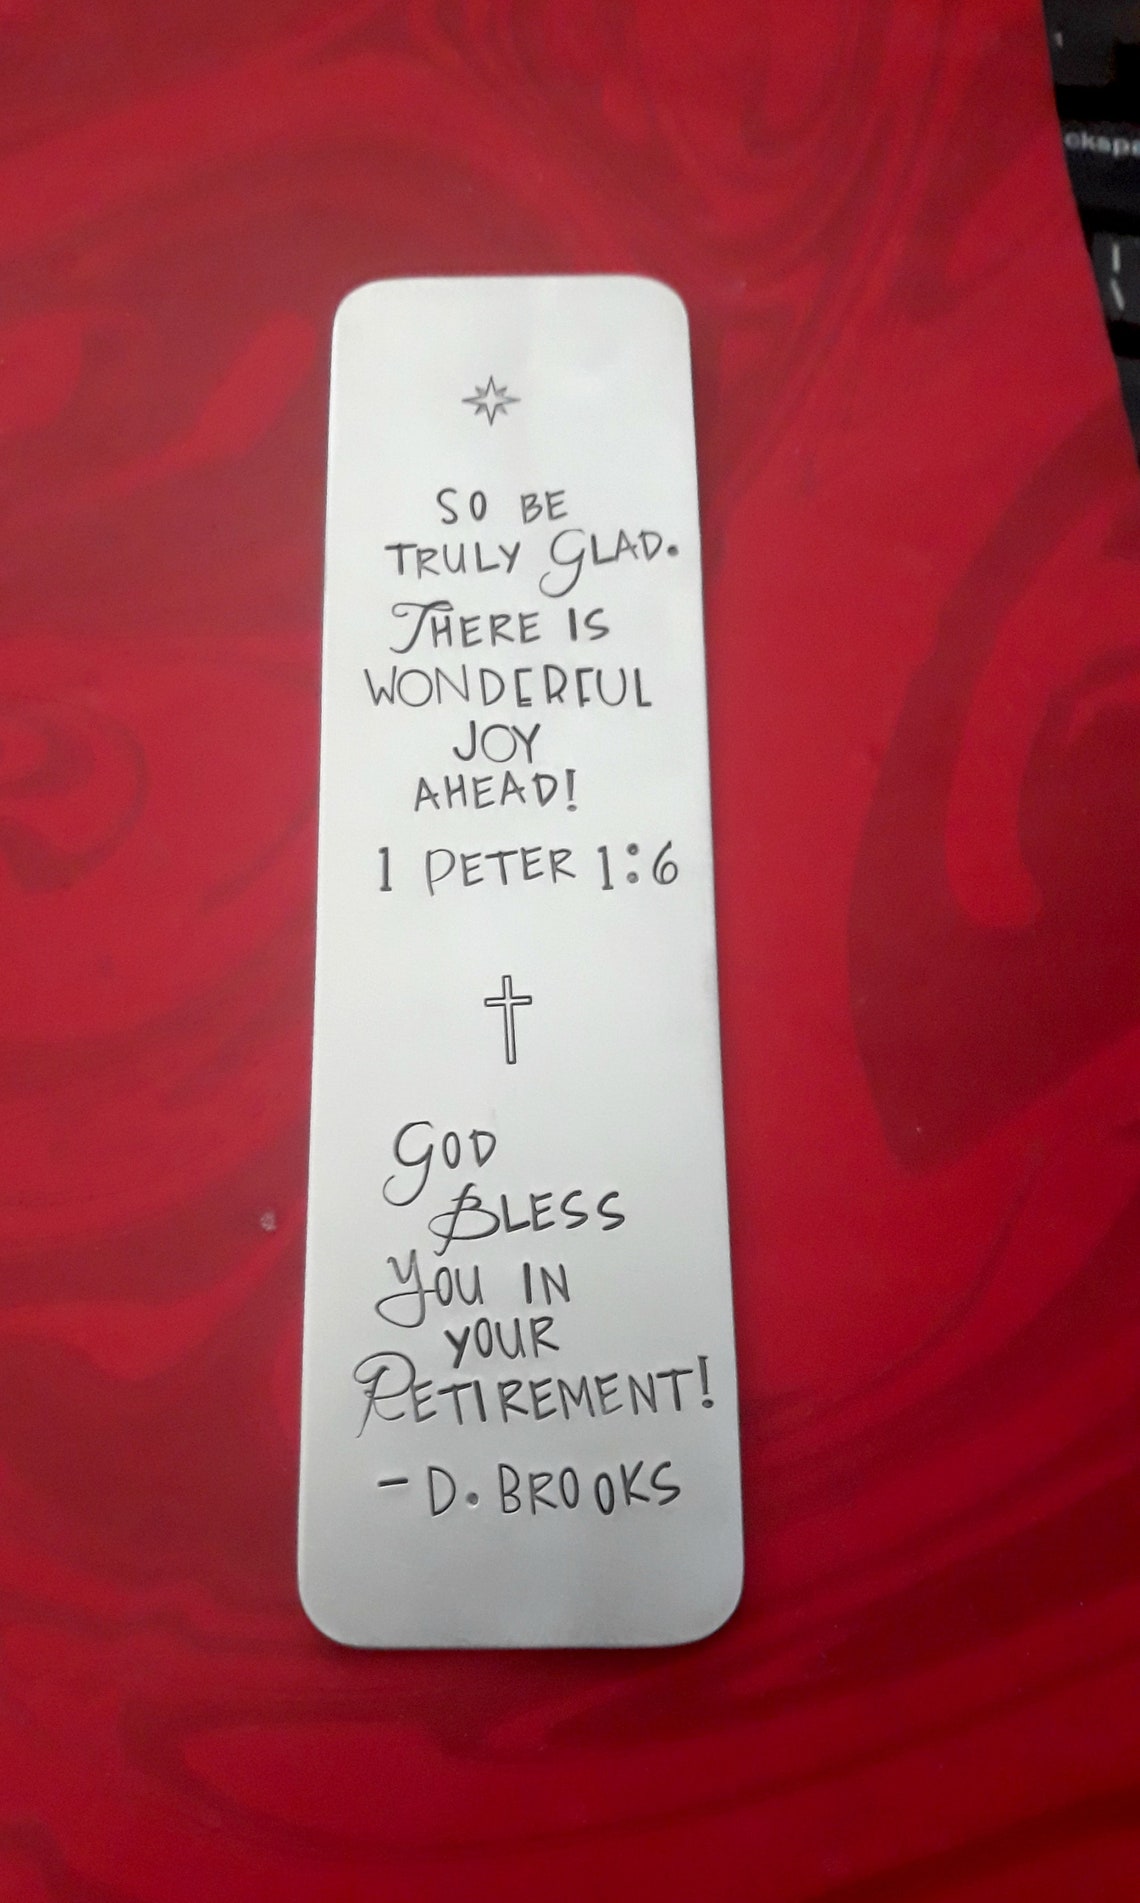 SO BE
TRULY GLAD.
THERE IS
WONDERFUL
JOY
AHEAD!
1 PETER 1:6
GOD
BLESS
YOU IN
YOUR
RETIREMENT!
- D. BROOKS